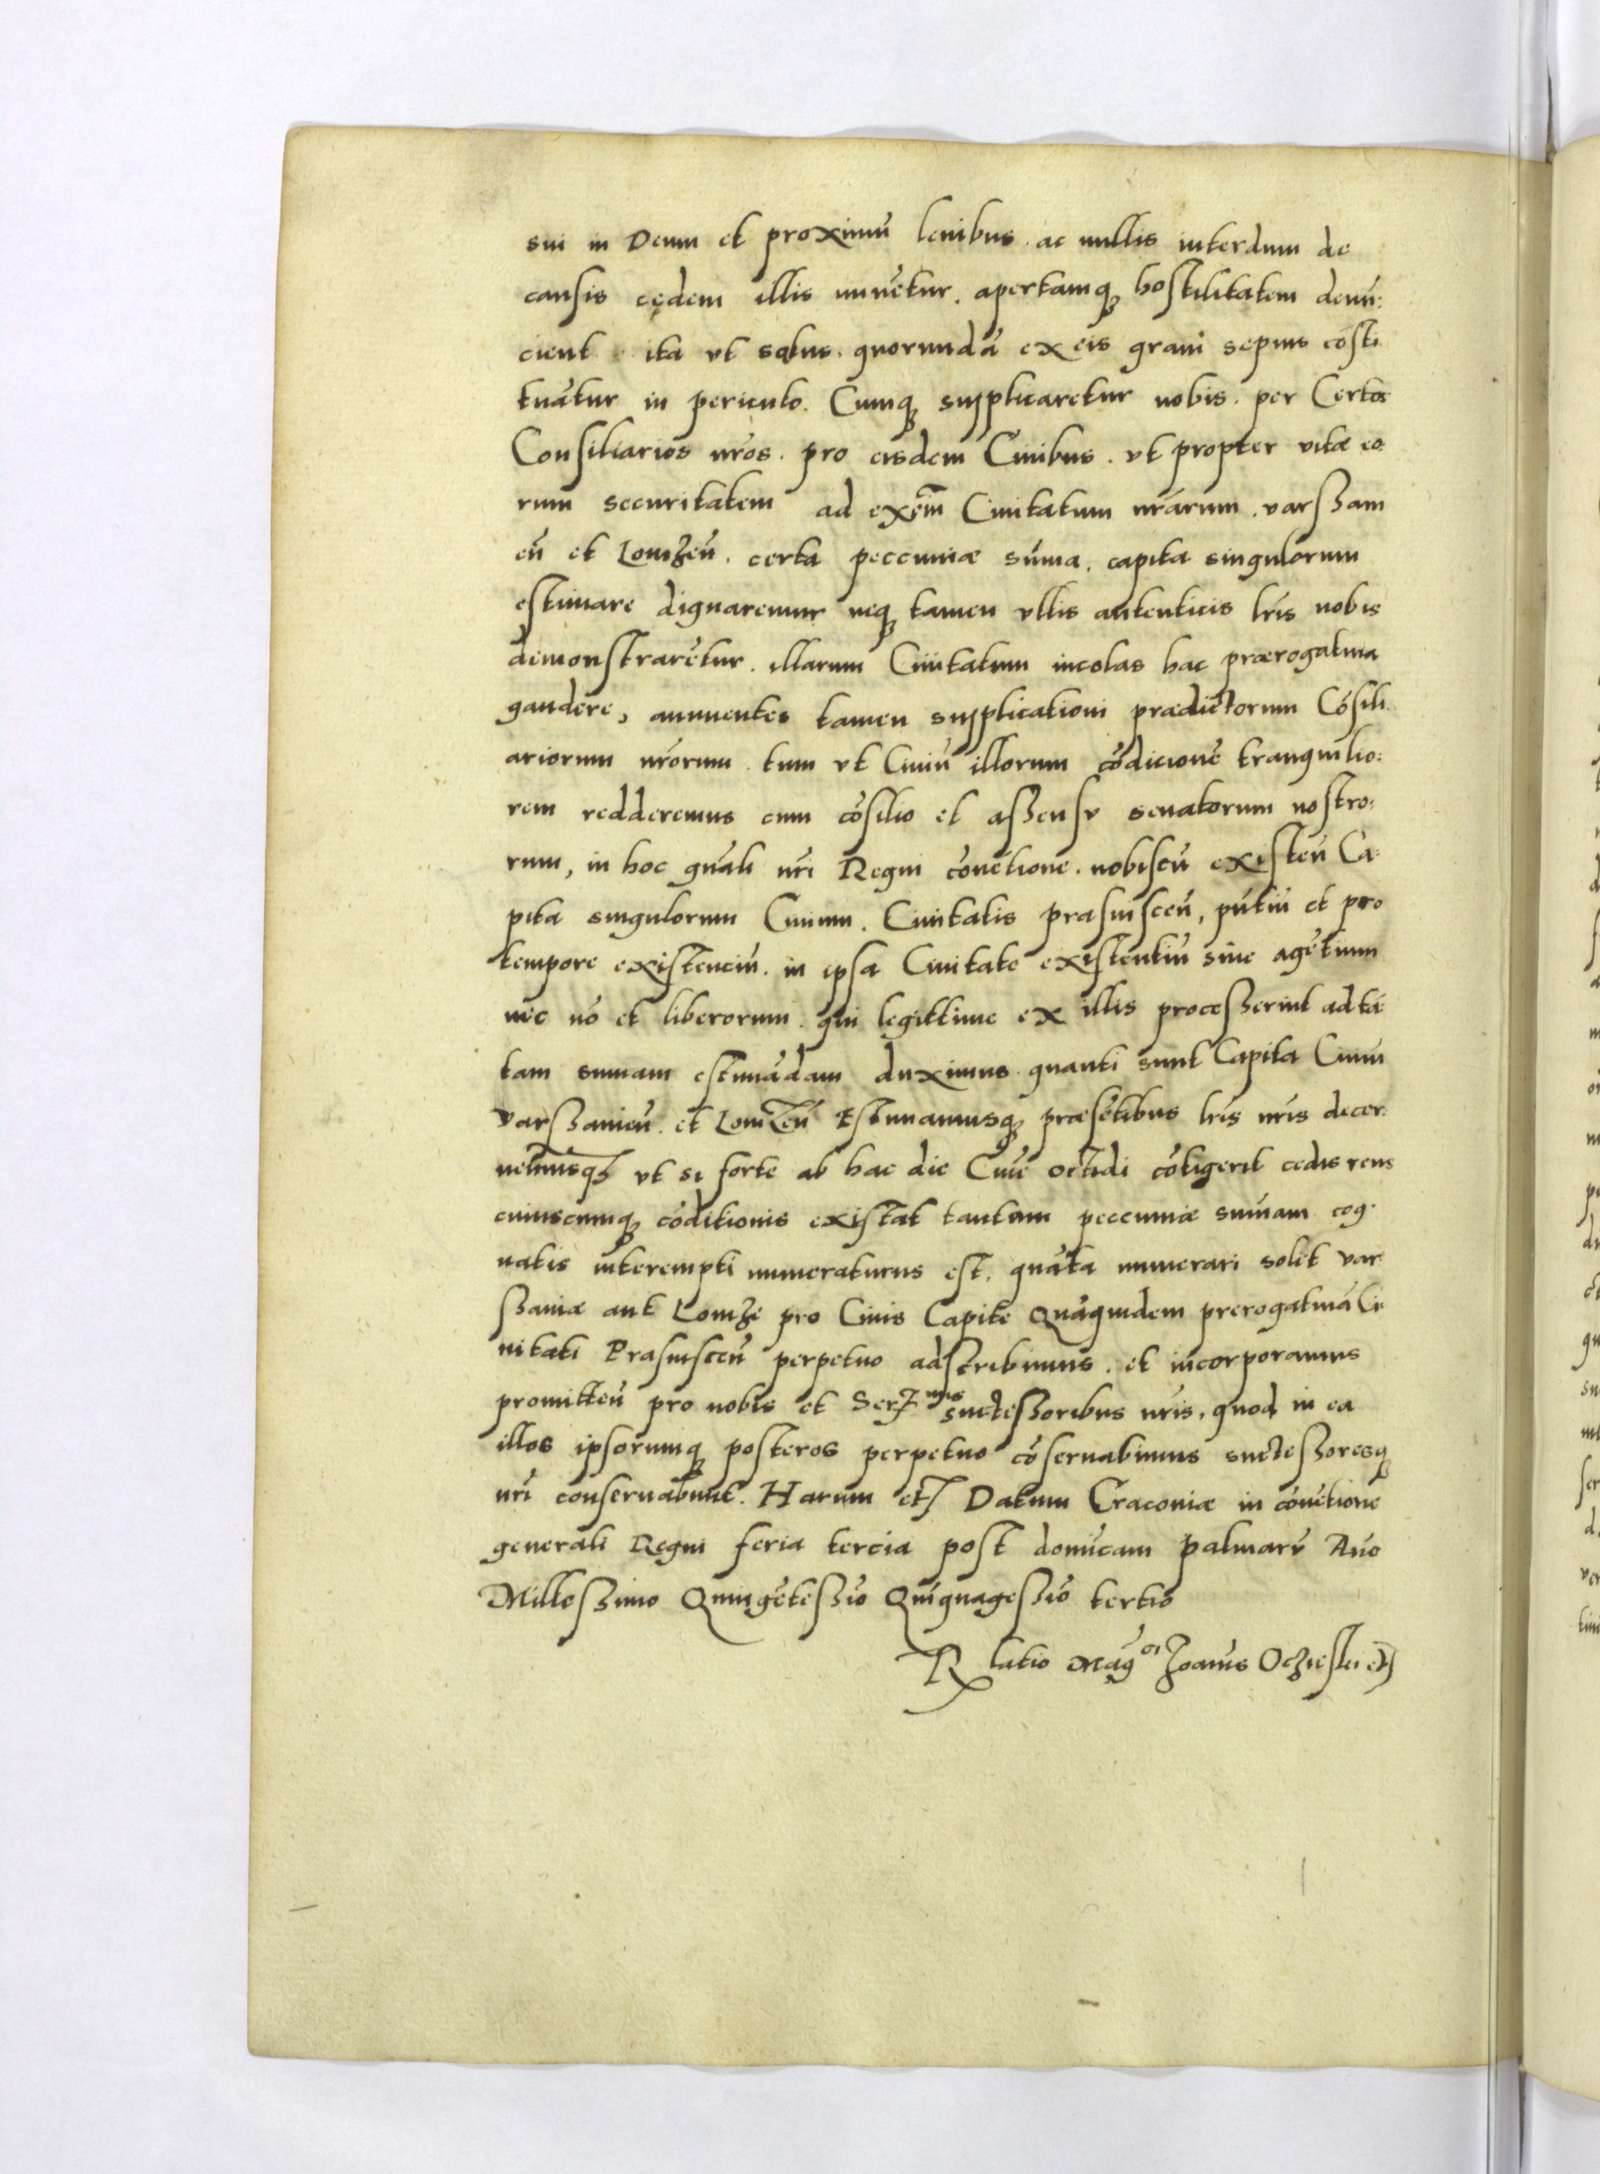 sui in Deum et proximū lenibus. ac nullis interdum de
causis cędem illis minētur. apertamq; hostilitatem denū:
cient ita vt salus. quorundā ex eis graui sepius cōsti
tuātur in periculo. Cumq; supplicaretur nobis. per Certos
Consiliarios nr̄os. pro eisdem Ciuibus. vt propter vitæ eo
rum securitatem ad exem̄ Ciuitatum nr̄arum. varssaui
eń et Lomzeń. certa peccuniæ sūma. capita singulorum
estimare dignaremur neq; tamen vllis autenticis lr̄is nobis
demonstrarētur. illarum Ciuitatum incolas hac prærogatiua
gaudere, annuentes tamen supplicationi prædictorum Cōsili
ariorum nr̄orum. tum vt Ciuiū illorum cōdicionē tranquilio:
rem redderemus cum cōsilio et assensv senatorum nostro:
rum, in hoc gn̄ali nr̄i Regni cōuētione. nobiscū existeń Ca
pita singulorum Ciuium. Ciuitatis prasnisceń, pn̄tiū et pro
tempore existenciū. in ipsa Ciuitate existentiū siue agētium
nec nō et liberorum. qui legittime ex illis processerint ad tā
tam summam estimādam duximus. quanti sunt Capita Ciuiū
varssauień. et Lomzeń Estimamusq; præsētibus lr̄is nr̄is decer:
nētimusq; vt si forte ab hac die Ciuē occidi cōtigerit cedis reus
cuiuscumq; cōditionis existat tantam peccuniæ sumam cog:
natis interempti numeraturus est. quāta numerari solet var
ssauiæ aut Lomze pro Ciuis Capite Quāquidem prerogatiuā Ci
uitati Prasnisceń perpetuo adscribimus. et incorporamus
promitteń pro nobis et Ser. mis successoribus nr̄is, quod in ea
illos ipsorumq; posteros perpetuo cōseruabimus successoresq;
nr̄i conseruabunt. Harum etc. Datum Cracoviæ in cōuētione
generali Regni feria tercia post domīcam palmarū Ano
Millessimo Quingētessīo Quīquagessīo tertio
Rlatio Mag.ci Joanis Ocziesky etc.